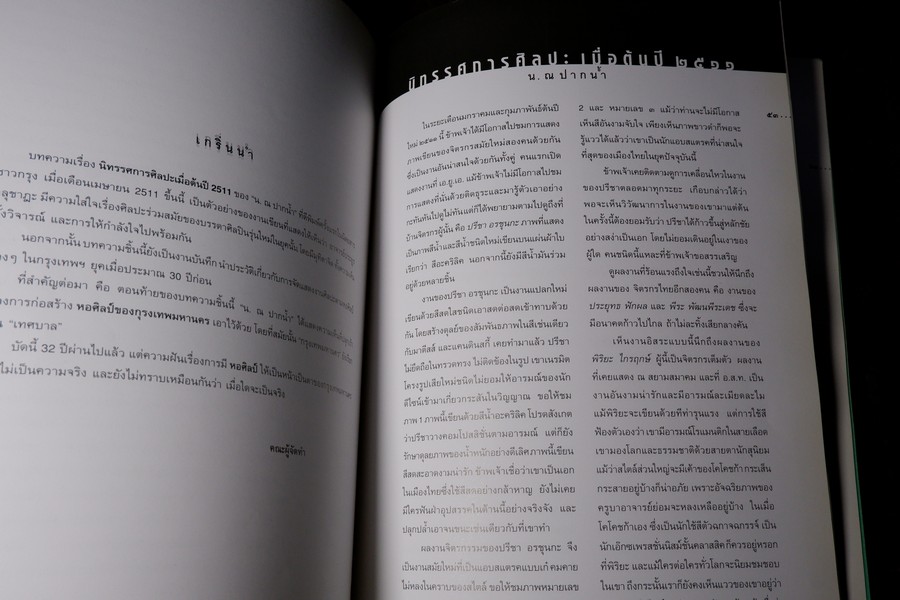 เกริ่นนำ
บทความเรื่อง นิทรรศการศิลปะเมื่อต้นปี 2511 ของ "น. ณ ปากน้ำ"
ราวกรุง เมื่อเดือนเมษายน 2511 ชิ้นนี้ เป็นตัวอย่างของงานเขียนที่แสดงให้เห็นว่า
มีความใส่ใจเรื่องศิลปะร่วมสมัยของบรรดาศิลปินรุ่นใหม่ในยุคนั้น
วิจารณ์ และการให้กำลังใจไปพร้อมกัน
นอกจากนั้น บทความชิ้นนี้ยังเป็นงานบันทึก นำประวัติเกี่ยวกับการจัดแสดงงาน
ๆ ในกรุงเทพฯ ยุคเมื่อประมาณ 30 ปีก่อน
ที่สำคัญต่อมา คือ ตอนท้ายของบทความชิ้นนี้ "น. ณ ปากน้ำ" ได้แสดงความ
งการก่อสร้าง หอศิลป์ของกรุงเทพมหานคร เอาไว้ด้วย โดยที่สมัยนั้น "กรุงเทพมหานคร"
น "เทศบาล"
บัดนี้ 32 ปีผ่านไปแล้ว แต่ความฝันเรื่องการมี หอศิลป์ ให้เป็นหน้าเป็นตาของกรุงเทพมหานคร
ไม่เป็นความจริง และยังไม่ทราบเหมือนกันว่า เมื่อใดจะเป็นจริง
คณะผู้จัดทำ
นิทรรศการศิลปะ เมื่อต้นปี ๒๕๑๑
น. ณ ปากน้ำ
ในระยะเดือนมกราคมและกุมภาพันธ์ต้นปี
ใหม่ ๒๕๑๑ นี้ ข้าพเจ้าได้มีโอกาสไปชมการแสดง
ภาพเขียนของจิตรกรสมัยใหม่สองคนด้วยกัน
ซึ่งเป็นงานอันน่าสนใจด้วยกันทั้งคู่ คนแรกเปิด
แสดงงานที่ เอ.ยู.เอ. แม้ข้าพเจ้าไม่มีโอกาสไปชม
การแสดงที่นั่นด้วยติดธุระและมารู้ตัวเอาอย่าง
กะทันหันไปดูไม่ทันแต่ก็ได้พยายามตามไปดูถึงที่
บ้านจิตรกรผู้นั้น คือ ปรีชา อรชุนกะ ภาพที่แสดง
เป็นภาพสีน้ำและสีน้ำชนิดใหม่เขียนบนแผ่นผ้าใบ
เรียกว่า สีอะคริลิค นอกจากนี้ยังมีสีน้ำมันร่วม
อยู่ด้วยหลายชิ้น
งานของปรีชา อรชุนกะ เป็นงานแปลกใหม่
เขียนด้วยสีสดใสชนิดเอาสดต่อสดเข้าทาบด้วย
กัน โดยสร้างดุลย์ของสัมพันธภาพในสีเช่นเดียว
กับมาตีสส์ และแคนดินสกี้ เคยทำมาแล้ว ปรีชา
ไม่ยึดถือในทรวดทรง ไม่ติดข้องในรูป เขาเนรมิต
โครงรูปเสียใหม่ชนิดไม่ยอมให้อารมณ์ของนัก
ดีไซน์เข้ามาเกี่ยวกระสันในวิญญาณ ขอให้ชม
ภาพ 1 ภาพนี้เขียนด้วยสีน้ำอะคริลิค โปรดสังเกต
ว่าปรีชาวางคอมโปสสิชั่นตามอารมณ์ แต่ก็ยัง
รักษาดุลยภาพของน้ำหนักอย่างดีเลิศ ภาพนี้เขียน
สีสดสะอาดงามน่ารัก ข้าพเจ้าเชื่อว่าเขาเป็นเอก
ในเมืองไทยซึ่งใช้สีสดอย่างกล้าหาญ ยังไม่เคย
มีใครฟันฝ่าอุปสรรคในด้านนี้อย่างจริงจัง และ
ปลุกปล้ำเอาจนชนะเช่นเดียวกับที่เขาทำ
ผลงานจิตรกรรมของปรีชา อรชุนกะ จึง
เป็นงานสมัยใหม่ที่เป็นแอบสแตรคแบบเก๋ คมคาย
ไม่หลงในคราบของสไตล์ ขอให้ชมภาพหมายเลข
2 และ หมายเลข ๓ แม้ว่าท่านจะไม่มีโอกาส
เห็นสีอันงามจับใจ เพียงเห็นภาพขาวดำก็พอจะ
รู้แววได้แล้วว่าเขาเป็นนักแอบสแตรคที่น่าสนใจ
ที่สุดของเมืองไทยในยุคปัจจุบันนี้
ข้าพเจ้าเคยติดตามดูการเคลื่อนไหวในงาน
ของปรีชาตลอดมาทุกระยะ เกือบกล่าวได้ว่า
พอจะเห็นวิวัฒนาการในงานของเขามาแต่ต้น
ในครั้งนี้ต้องยอมรับว่า ปรีชาได้ก้าวขึ้นสู่หลักชัย
อย่างสง่าเป็นเอก โดยไม่ยอมเดินอยู่ในเงาของ
ผู้ใด คนชนิดนี้แหละที่ข้าพเจ้าขอสรรเสริญ
ดูผลงานที่ร้อนแรงถึงใจเช่นนี้ชวนให้นึกถึง
ผลงานของ จิตรกรไทยอีกสองคน คือ งานของ
ประยุทธ ฟักผล และ พีระ พัฒนพีระเดช ซึ่งจะ
มีอนาคตก้าวไปไกล ถ้าไม่ละทิ้งเสียกลางคัน
เห็นงานอิสระแบบนี้นึกถึงผลงานของ
พิริยะ ไกรฤกษ์ ผู้นี้เป็นจิตรกรเต็มตัว ผลงาน
ที่เคยแสดง ณ สยามสมาคม และที่ อ.ส.ท. เป็น
งานอันงามน่ารักและมีอารมณ์ละเมียดละไม
แม้พิริยะจะเขียนด้วยทีท่ารุนแรง แต่การใช้สี
ฟ้องตัวเองว่า เขามีอารมณ์โรแมนติกในสายเลือด
เขามองโลกและธรรมชาติด้วยสายตานักสุนิยม
แม้ว่าสไตล์ส่วนใหญ่จะมีเค้าของโคโคชก้า กระเส็น
กระสายอยู่บ้างก็น่าอภัย เพราะอัจฉริยภาพของ
ครูบาอาจารย์ย่อมจะหลงเหลืออยู่บ้าง ในเมื่อ
โคโคชก้าเอง ซึ่งเป็นนักใช้สีตัวฉกาจฉกรรจ์ เป็น
นักเอ๊กซเพรสชั่นนิสม์ชั้นคลาสสิค ก็ควรอยู่หรอก
ที่พิริยะ และแม้ใครต่อใครทั่วโลกจะนิยมชมชอบ
ในเขา ถึงกระนั้นเราก็ยังคงเห็นแววของเขาอยู่ว่า
๕๓